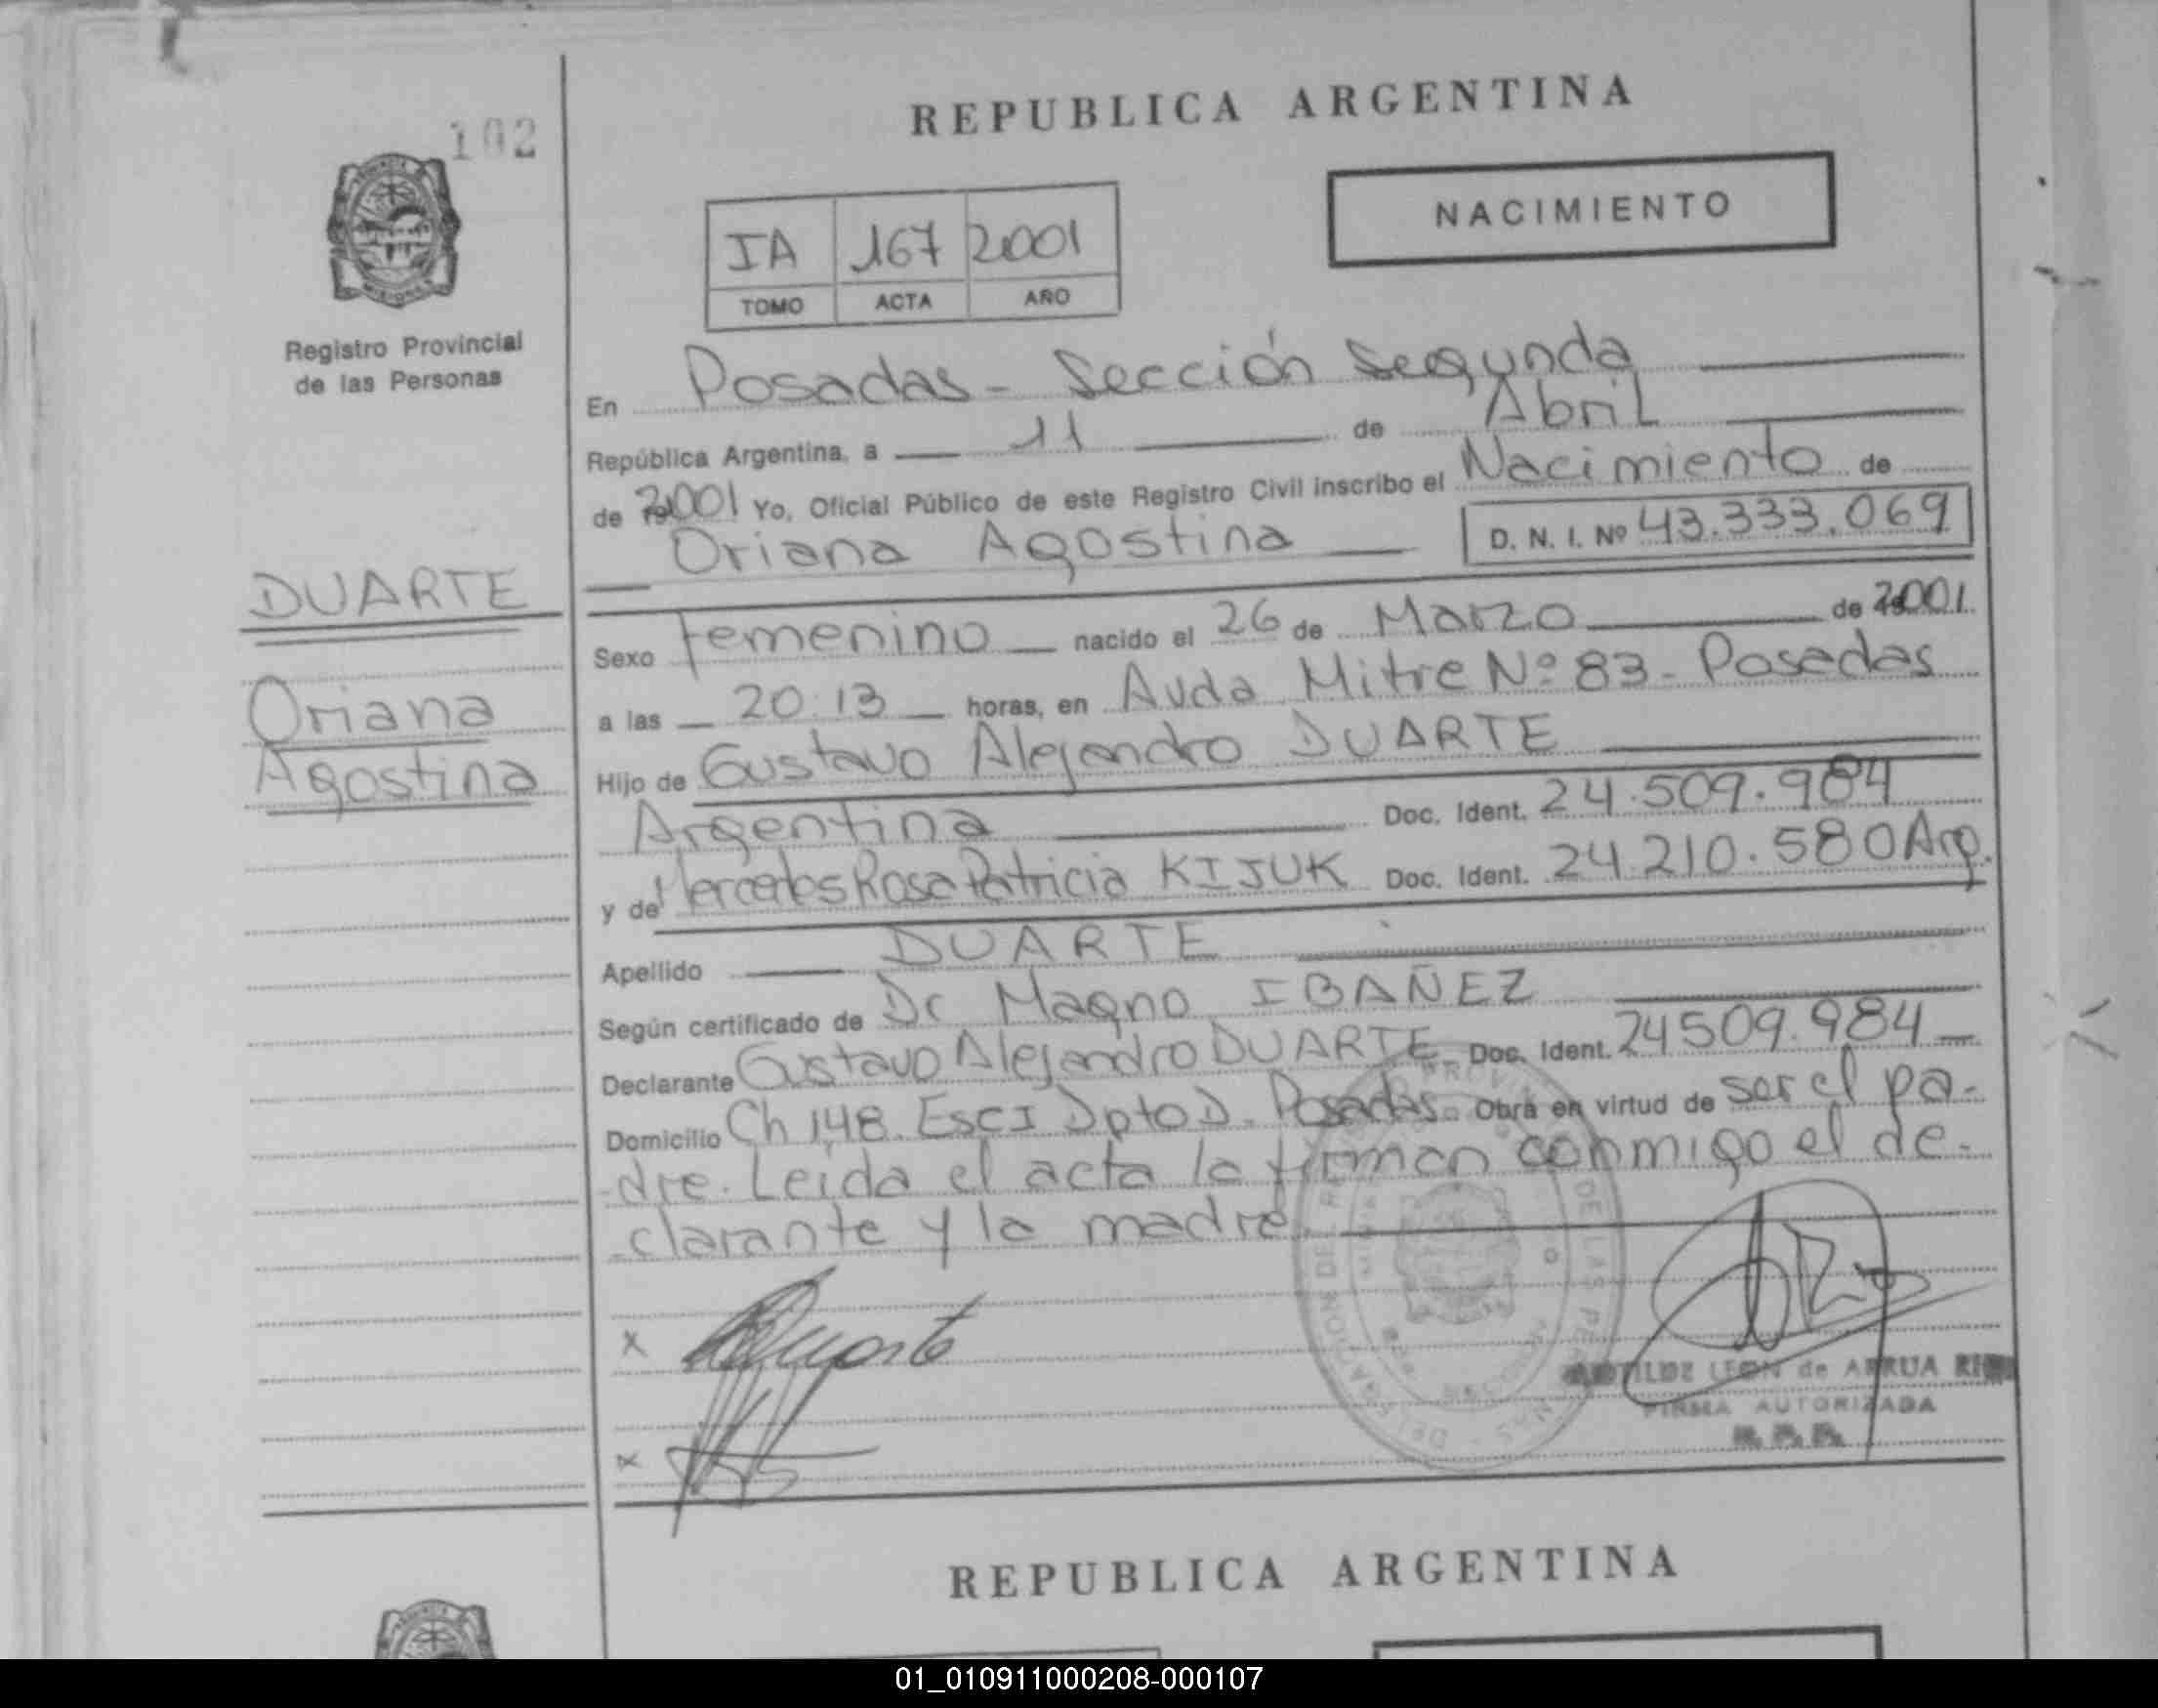 102
REPUBLICA ARGENTINA
NACIMIENTO
IA 167 2001
TOMO ACTA AÑO
Registro Provincial
de las Personas
En Posadas - Sección Segunda
República Argentina, a 11 de Abril
de 2001 Yo, Oficial Público de este Registro Civil inscribo el Nacimiento de
Oriana Agostina D. N. I. Nº 43.333.069
DUARTE
Oriana
Agostina
Sexo femenino nacido el 26 de Marzo de 2001
a las 20:13 horas, en Avda Mitre Nº 83 - Posadas
Hijo de Gustavo Alejandro DUARTE
Argentina Doc. Ident. 24.509.984
y de Mercedes Rosa Patricia KIJUK Doc. Ident. 24.210.580 Arg.
Apellido DUARTE
Según certificado de Dr Magno IBAÑEZ
Declarante Gustavo Alejandro DUARTE Doc. Ident. 24509.984
Domicilio Ch 148 Esc I Dpto D. Posadas. Obra en virtud de ser el pa-
dre. Leida el acta la firman conmigo el de-
clarante y la madre.
x Duarte
x
LEON de ARRUA
FIRMA AUTORIZADA
REPUBLICA ARGENTINA
01_010911000208-000107